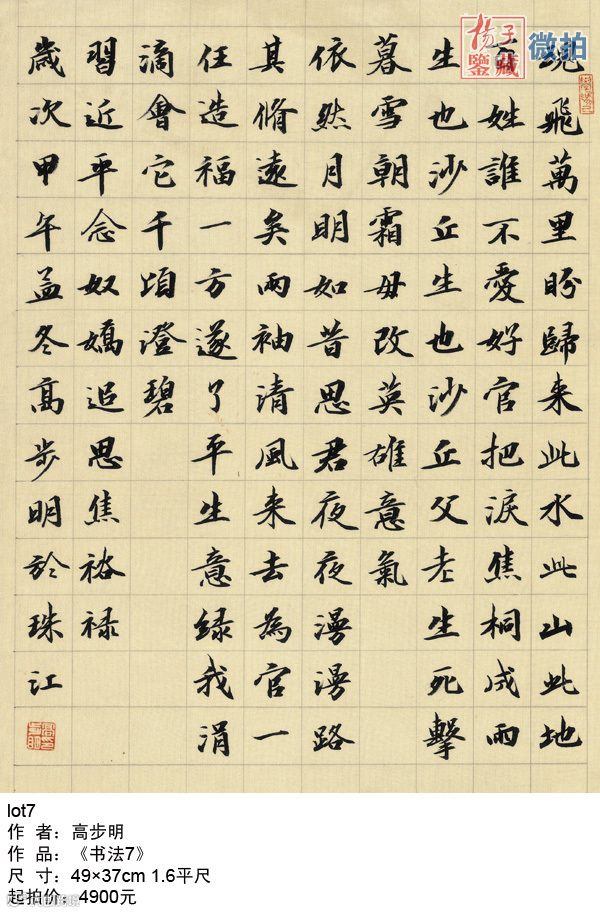 杨子
鑒藏
微拍
飛萬里盼歸来此水此山此地
百姓誰不愛好官把淚焦桐成雨
生也沙丘生也沙丘父老生死擊
暮雪朝霜毋改英雄意氣
依然月明如昔思君夜夜漫漫路
其脩遠矣兩袖清風来去為官一
任造福一方遂了平生意绿我涓
滴會它千頃澄碧
習近平念奴嬌追思焦裕禄
歲次甲午孟冬高步明於珠江
lot7
作 者：高步明
作 品：《书法7》
尺 寸：49×37cm 1.6平尺
起拍价：4900元